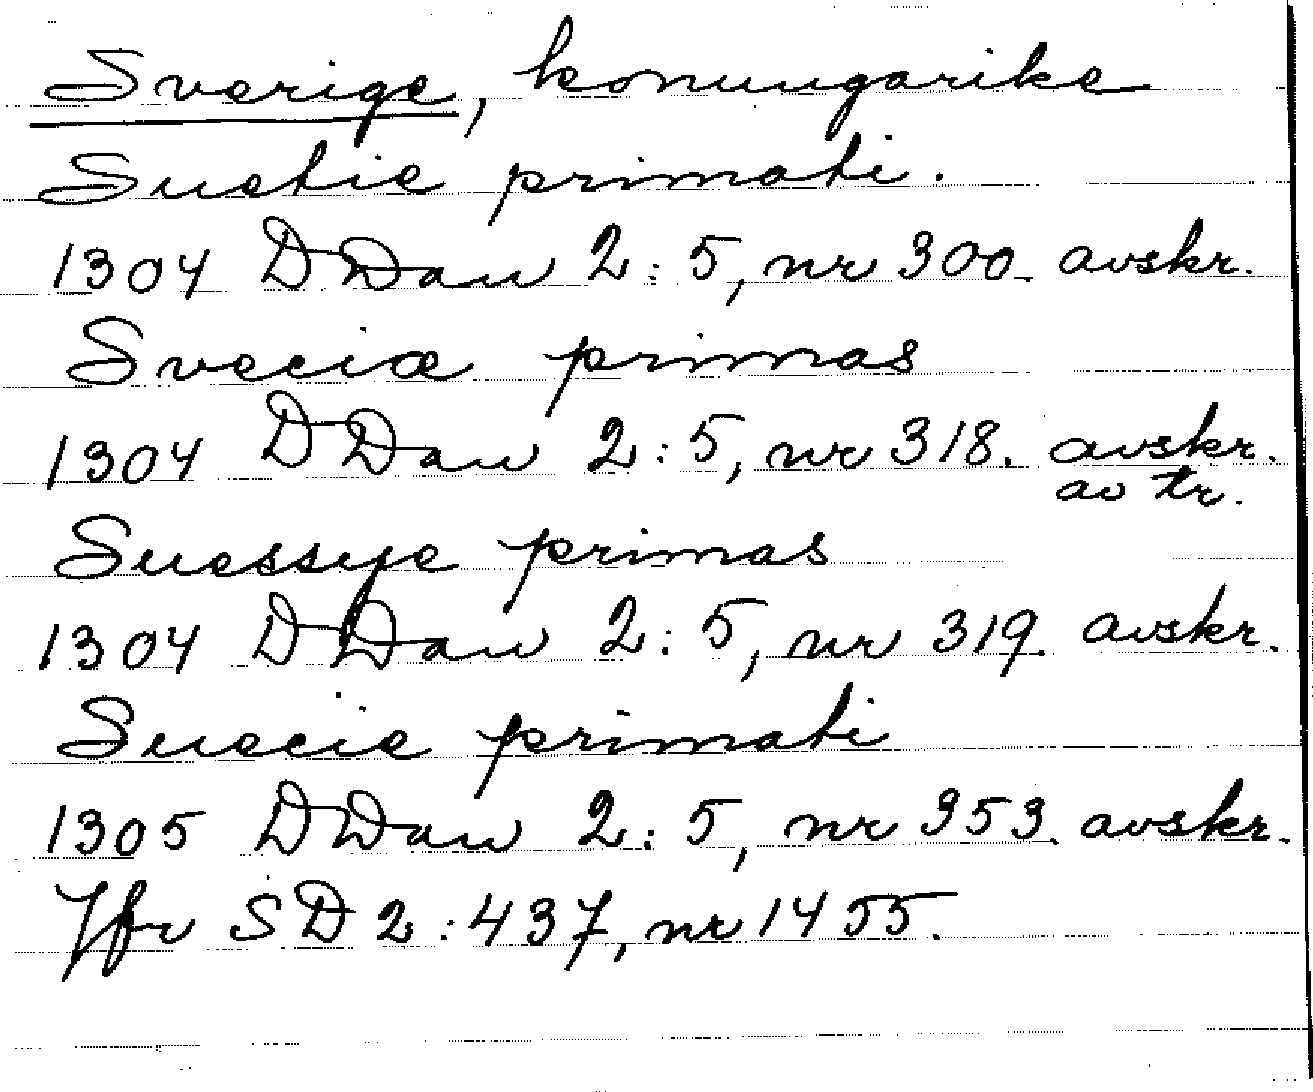 Sverige, konungarike
Suetie primati.
1304 DDan 2:5, nr 300. avskr.
Sveciæ primas
1304 DDan 2:5, nr 318. avskr.
av tr.
Suessye primas
1304 DDan 2:5, nr 319. avskr.
Suecie primati
1305 DDan 2:5, nr 353. avskr.
Jfr SD 2:437, nr 1455.